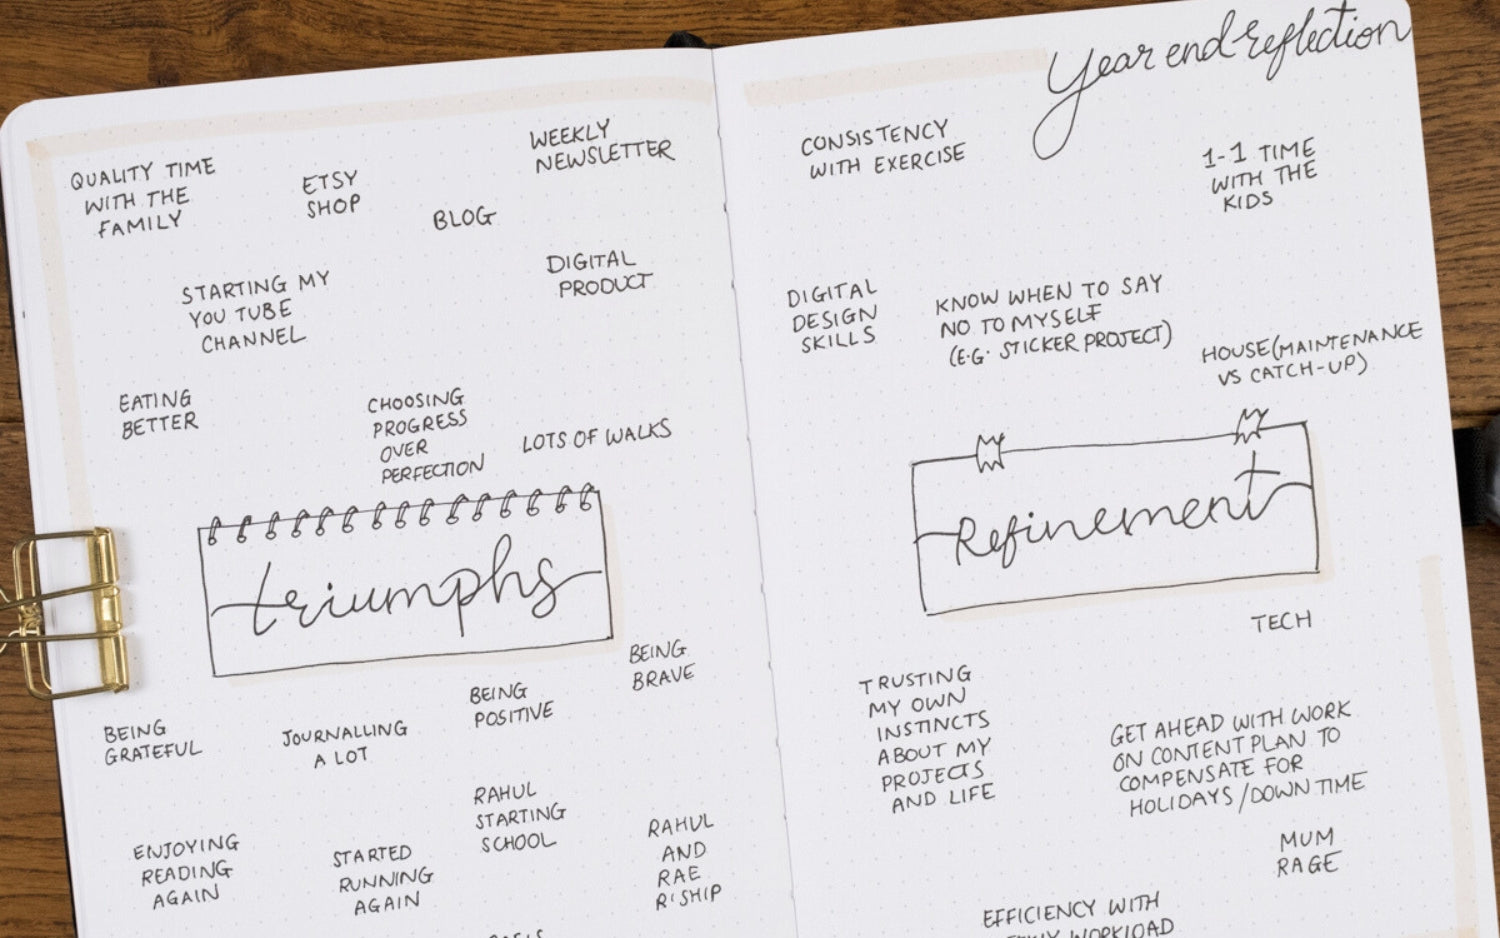 Year end reflection
QUALITY TIME
WITH THE
FAMILY
ETSY
SHOP
WEEKLY
NEWSLETTER
BLOG
STARTING MY
YOU TUBE
CHANNEL
DIGITAL
PRODUCT
EATING
BETTER
CHOOSING
PROGRESS
OVER
PERFECTION
LOTS OF WALKS
triumphs
BEING
GRATEFUL
JOURNALLING
A LOT
BEING
POSITIVE
BEING
BRAVE
ENJOYING
READING
AGAIN
STARTED
RUNNING
AGAIN
RAHUL
STARTING
SCHOOL
RAHUL
AND
RAE
R'SHIP
CONSISTENCY
WITH EXERCISE
1-1 TIME
WITH THE
KIDS
DIGITAL
DESIGN
SKILLS
KNOW WHEN TO SAY
NO TO MYSELF
(E.G. STICKER PROJECT)
HOUSE (MAINTENANCE
VS CATCH-UP)
Refinement
TECH
TRUSTING
MY OWN
INSTINCTS
ABOUT MY
PROJECTS
AND LIFE
GET AHEAD WITH WORK
ON CONTENT PLAN TO
COMPENSATE FOR
HOLIDAYS/DOWN TIME
MUM
RAGE
EFFICIENCY WITH
WORKLOAD